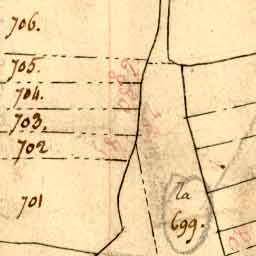 706.
705.
704.
703.
702
701
la
699.